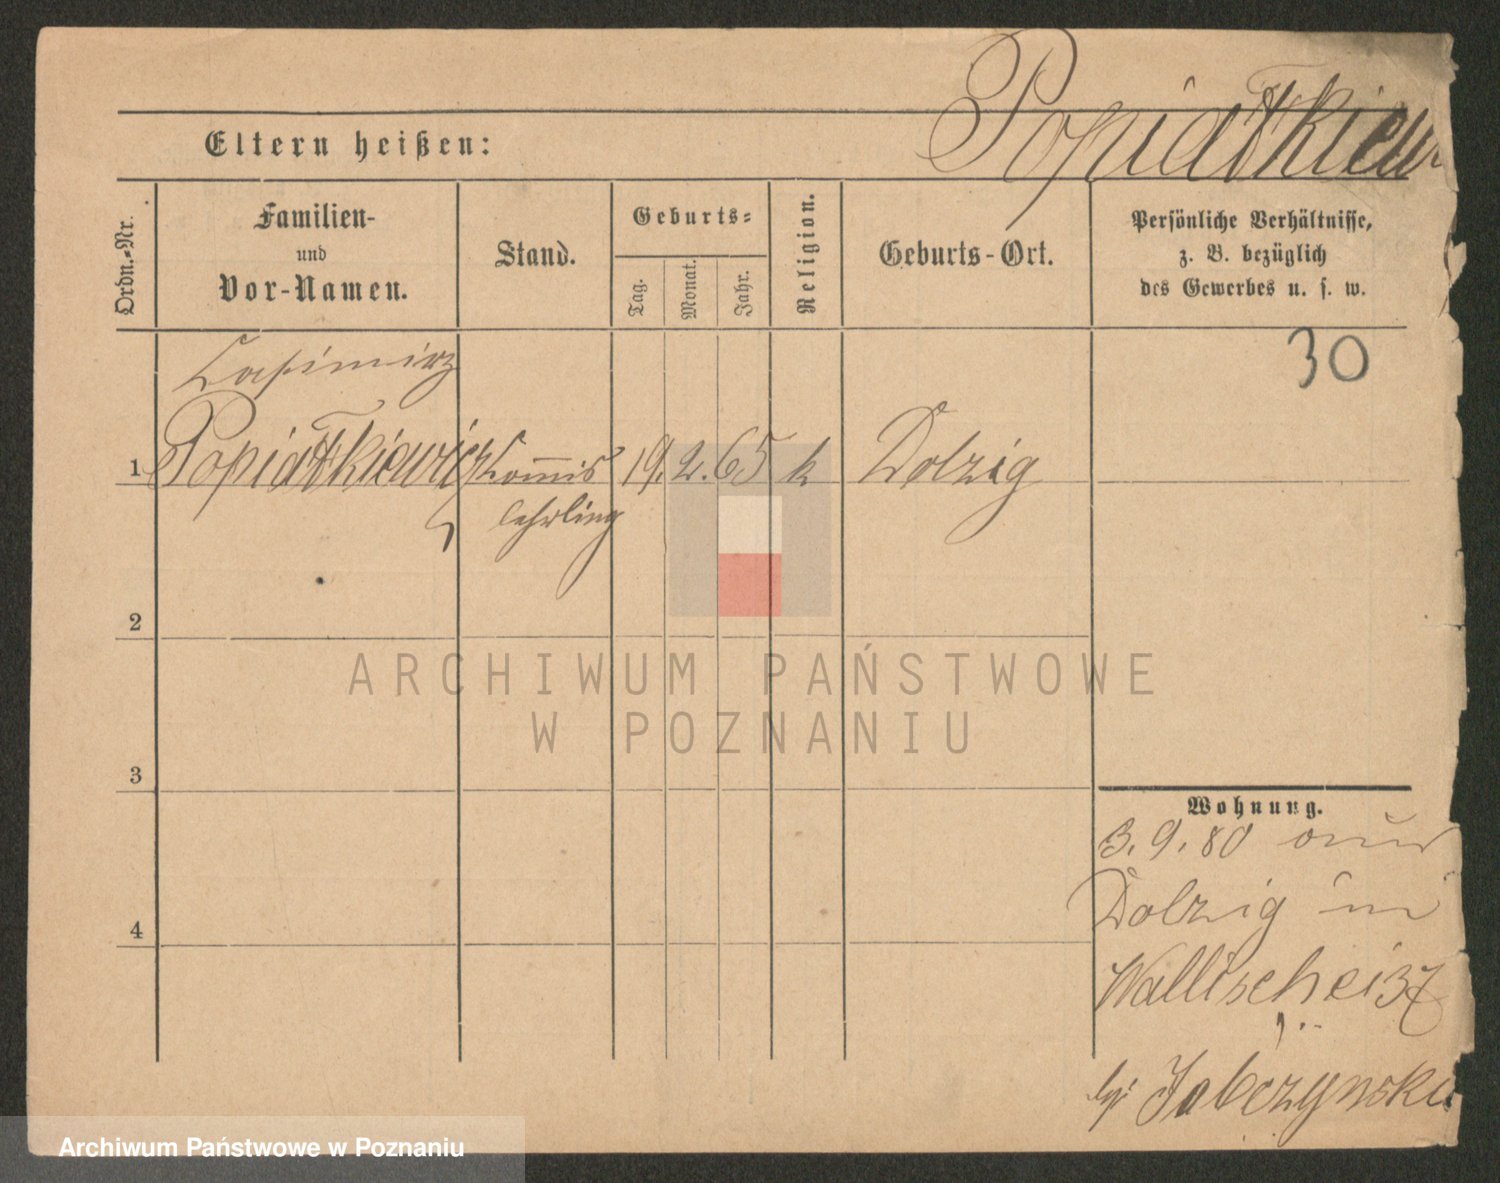 Popiatkiew
Eltern heißen:
Ordn.-Nr.
Familien-
und
Vor-Namen.
Stand.
Geburts-
Tag.
Monat.
Jahr.
Religion.
Geburts-Ort.
Persönliche Verhältnisse,
z. B. bezüglich
des Gewerbes u. s. w.
30
Casimirz
1 Popiatkiewicz Commis 19. 2. 65 k Dolzig
lehrling
2
3
4
Wohnung.
3. 9. 80 aus
Dolzig in
Wallischei 37
bei Jabczynski
ARCHIWUM PAŃSTWOWE
W POZNANIU
Archiwum Państwowe w Poznaniu